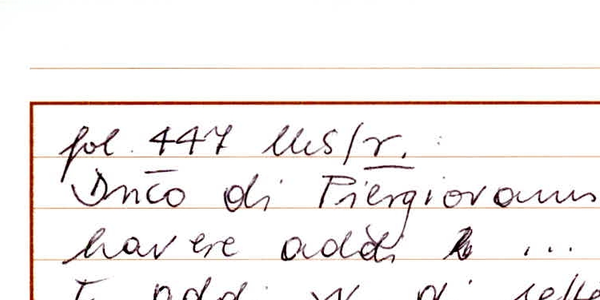 fol. 447 MS/r.
Dnico di Piergiovanni
havere addi ...
addi di